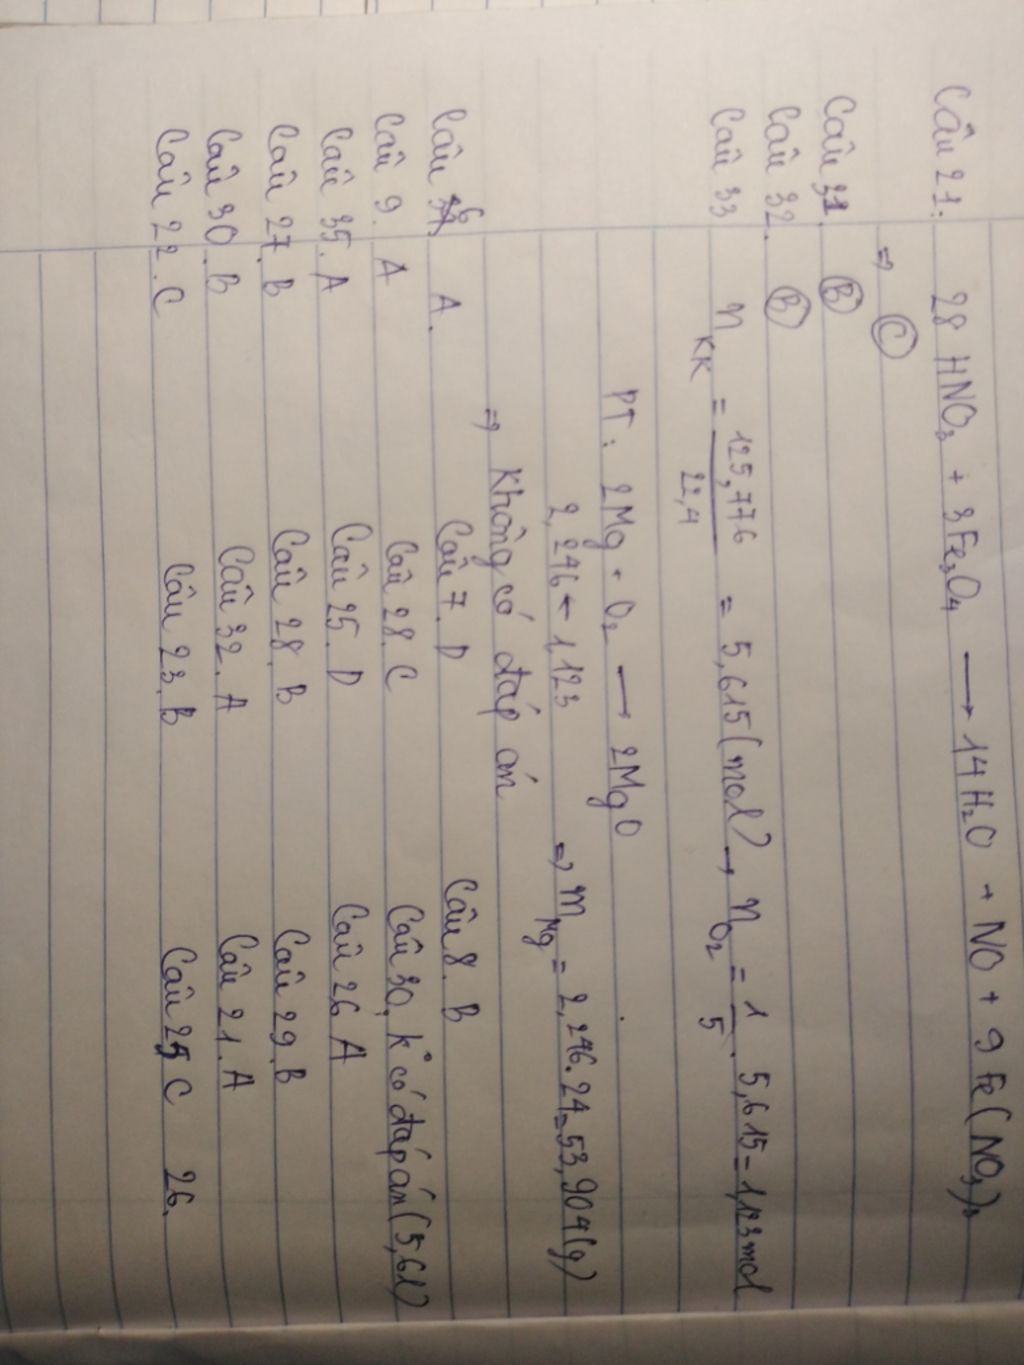 Câu 21: 28 HNO₃ + 3Fe₃O₄ ⟶ 14H₂O + NO + 9 Fe(NO₃)₃
⇒ C
Câu 31. B
Câu 32. B
Câu 33 n KK = 125,776 / 22,4 = 5,615 (mol) → n O₂ = 1/5 . 5,615 = 1,123 mol
PT: 2Mg + O₂ ⟶ 2MgO
2,246 ← 1,123 ⇒ m Mg = 2,246.24 = 53,904(g)
⇒ Không có đáp án
Câu 6. A. Câu 7. D Câu 8. B
Câu 9. A Câu 28. C Câu 30. k° có đáp án (5,6l)
Câu 35. A Câu 25. D Câu 26 A
Câu 27. B Câu 28. B Câu 29. B
Câu 30. B Câu 32. A Câu 21. A
Câu 22. C Câu 23. B Câu 25 C 26.